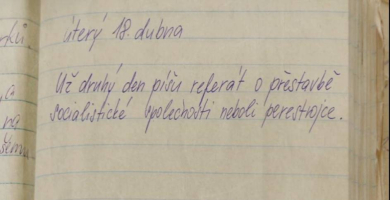 úterý 18. dubna
Už druhý den píšu referát o přestavbě
socialistické společnosti neboli perestrojce.